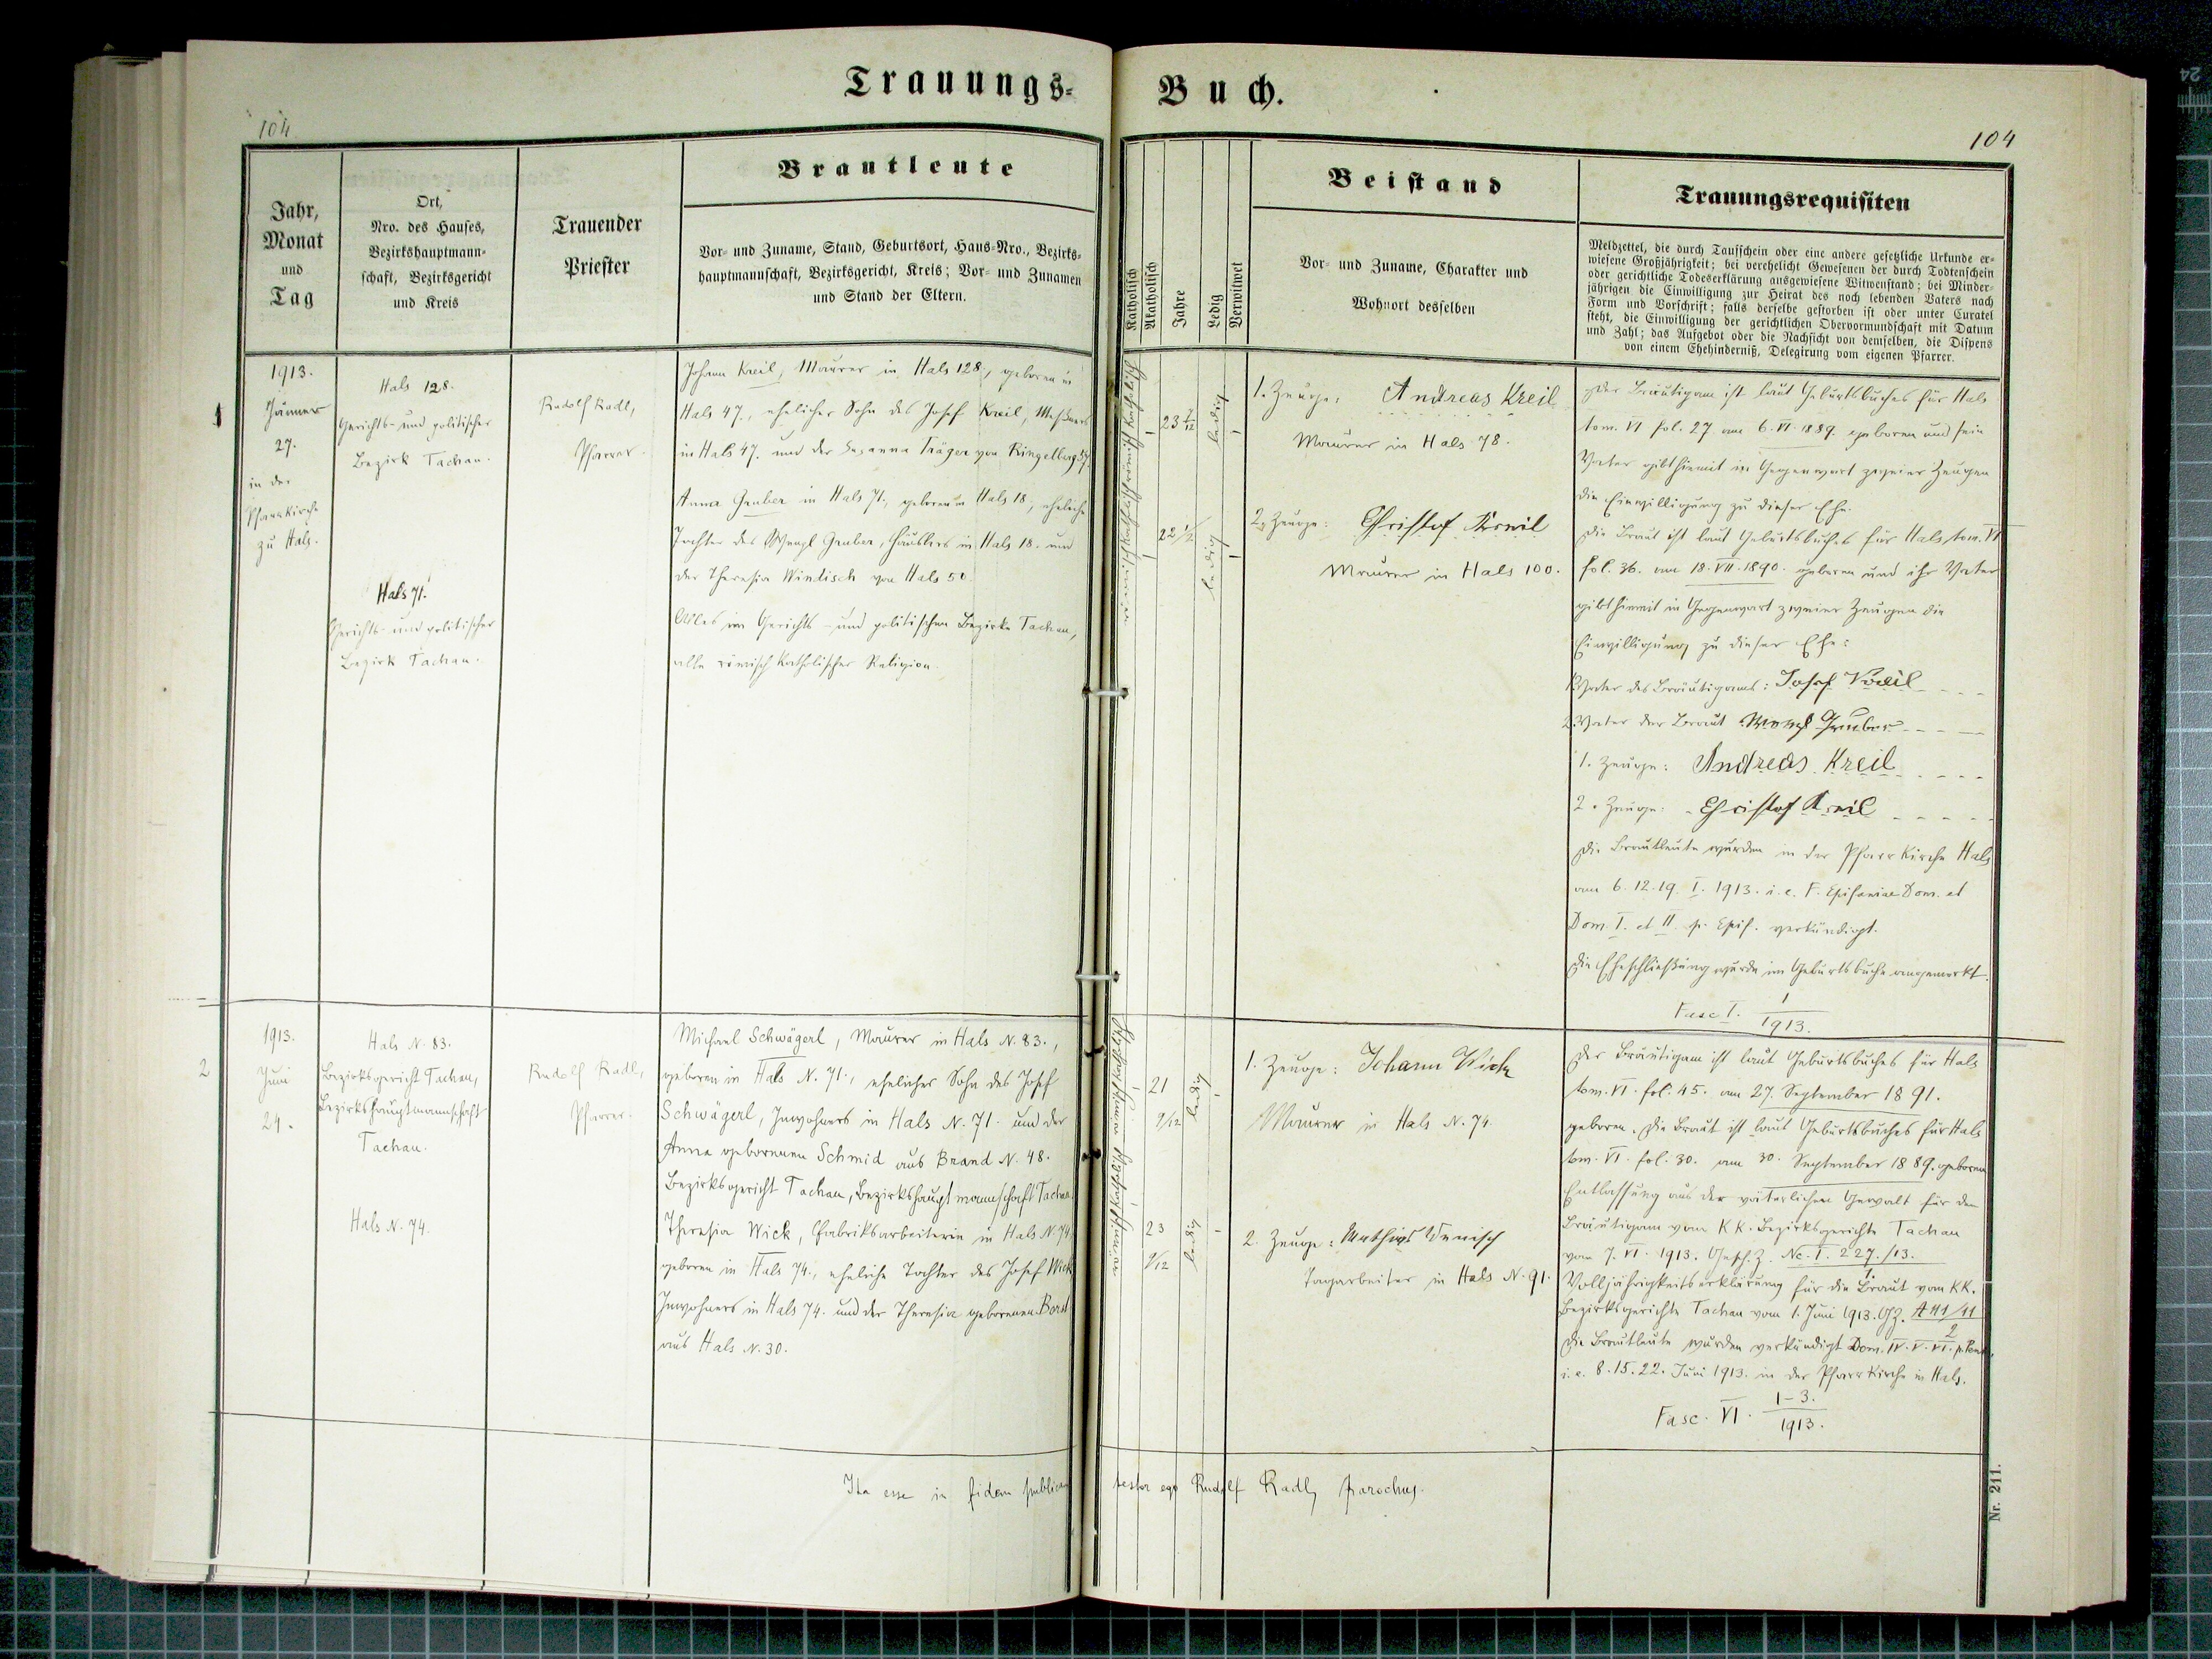 Trauungs-
Buch.
104
104
Jahr,
Monat
und
Tag
Ort,
Nro. des Hauses,
Bezirkshauptmann-
schaft, Bezirksgericht
und Kreis
Trauender
Priester
Brautleute
Vor- und Zuname, Stand, Geburtsort, Haus-Nro., Bezirks-
hauptmannschaft, Bezirksgericht, Kreis; Vor- und Zunamen
und Stand der Eltern.
Katholisch
Akatholisch
Jahre
Ledig
Verwitwet
Beistand
Vor- und Zuname, Charakter und
Wohnort desselben
Trauungsrequisiten
Meldzettel, die durch Taufschein oder eine andere gesetzliche Urkunde er-
wiesene Großjährigkeit; bei verehelicht Gewesenen der durch Todtenschein
oder gerichtliche Todeserklärung ausgewiesene Witwenstand; bei Minder-
jährigen die Einwilligung zur Heirat des noch lebenden Vaters nach
Form und Vorschrift; falls derselbe gestorben ist oder unter Curatel
steht, die Einwilligung der gerichtlichen Obervormundschaft mit Datum
und Zahl; das Aufgebot oder die Nachsicht von demselben, die Dispens
von einem Ehehinderniß, Delegirung vom eigenen Pfarrer.
1
1913.
Jänner
27.
in der
Pfarrkirche
zu Hals.
Hals 128.
Gerichts- und politischer
Bezirk Tachau.
Hals 71.
Gerichts- und politischer
Bezirk Tachau.
Rudolf Radl,
Pfarrer.
Johann Kreil, Maurer in Hals 128., geboren in
Hals 47., ehelicher Sohn des Josef Kreil, Meßners
in Hals 47. und der Susanna Träger von Ringelberg 57.
Anna Gruber in Hals 71., geboren in Hals 18, eheliche
Tochter des Wenzl Gruber, Häuslers in Hals 18. und
der Theresia Windisch von Hals 50.
Alles im Gerichts- und politischen Bezirke Tachau,
alle römisch katholischer Religion.
23 7/12
ledig
22 1/2
ledig
1. Zeuge: Andreas Kreil
Maurer in Hals 78.
2. Zeuge: Christof Kreil
Maurer in Hals 100.
Der Bräutigam ist laut Geburtsbuches für Hals
tom. VI fol. 27 am 6. VI. 1889. geboren und sein
Vater gibt hiemit in Gegenwart zweier Zeugen
die Einwilligung zu dieser Ehe.
Die Braut ist laut Geburtsbuches für Hals tom. VI
fol. 36. am 18. VII. 1890. geboren und ihr Vater
gibt hiemit in Gegenwart zweier Zeugen die
Einwilligung zu dieser Ehe:
1. Vater des Bräutigams: Josef Kreil
2. Vater der Braut Wenzl Gruber
1. Zeuge: Andreas Kreil
2. Zeuge: Christof Kreil
Die Brautleute wurden in der Pfarrkirche Hals
am 6. 12. 19. I. 1913. i. e. F. Epifaniae Dom. et
Dom. I. et II p. Epif. verkündigt.
Die Eheschließung wurde im Geburtsbuche angemerkt.
Fasc I. 1/1913.
2
1913.
Juni
24.
Hals N. 83.
Bezirksgericht Tachau,
Bezirkshauptmannschaft
Tachau.
Hals N. 74.
Rudolf Radl,
Pfarrer.
Michael Schwägerl, Maurer in Hals N. 83.,
geboren in Hals N. 71., ehelicher Sohn des Josef
Schwägerl, Inwohners in Hals N. 71. und der
Anna geborenen Schmid aus Brand N. 48.
Bezirksgericht Tachau, Bezirkshauptmannschaft Tachau.
Theresia Wick, Fabriksarbeiterin in Hals N. 74.
geboren in Hals 74., eheliche Tochter des Josef Wick
Inwohners in Hals 74. und der Theresia geborenen
aus Hals N. 30.
21
9/12
ledig
23
9/12
ledig
1. Zeuge: Johann Wick
Maurer in Hals N. 74.
2. Zeuge: Mathias
Tagarbeiter in Hals N. 91.
Der Bräutigam ist laut Geburtsbuches für Hals
tom. VI. fol. 45. am 27. September 1891.
geboren. Die Braut ist laut Geburtsbuches für Hals
tom. VI. fol. 30. am 30. September 1889. geboren
Entlassung aus der väterlichen Gewalt für den
Bräutigam vom KK. Bezirksgerichte Tachau
vom 7. VI. 1913. Gesch. Z. Nc. I. 227./13.
Volljährigkeitserklärung für die Braut vom KK.
Bezirksgerichte Tachau vom 1. Juni 1913. GZ.
Die Brautleute wurden verkündigt Dom. IV. V. VI. p. Pent.
i. e. 8. 15. 22. Juni 1913. in der Pfarrkirche in Hals.
Fasc. VI. 1-3./1913.
Ita esse in fidem publicam testor ego Rudolf Radl, parochus.
Nr. 211.